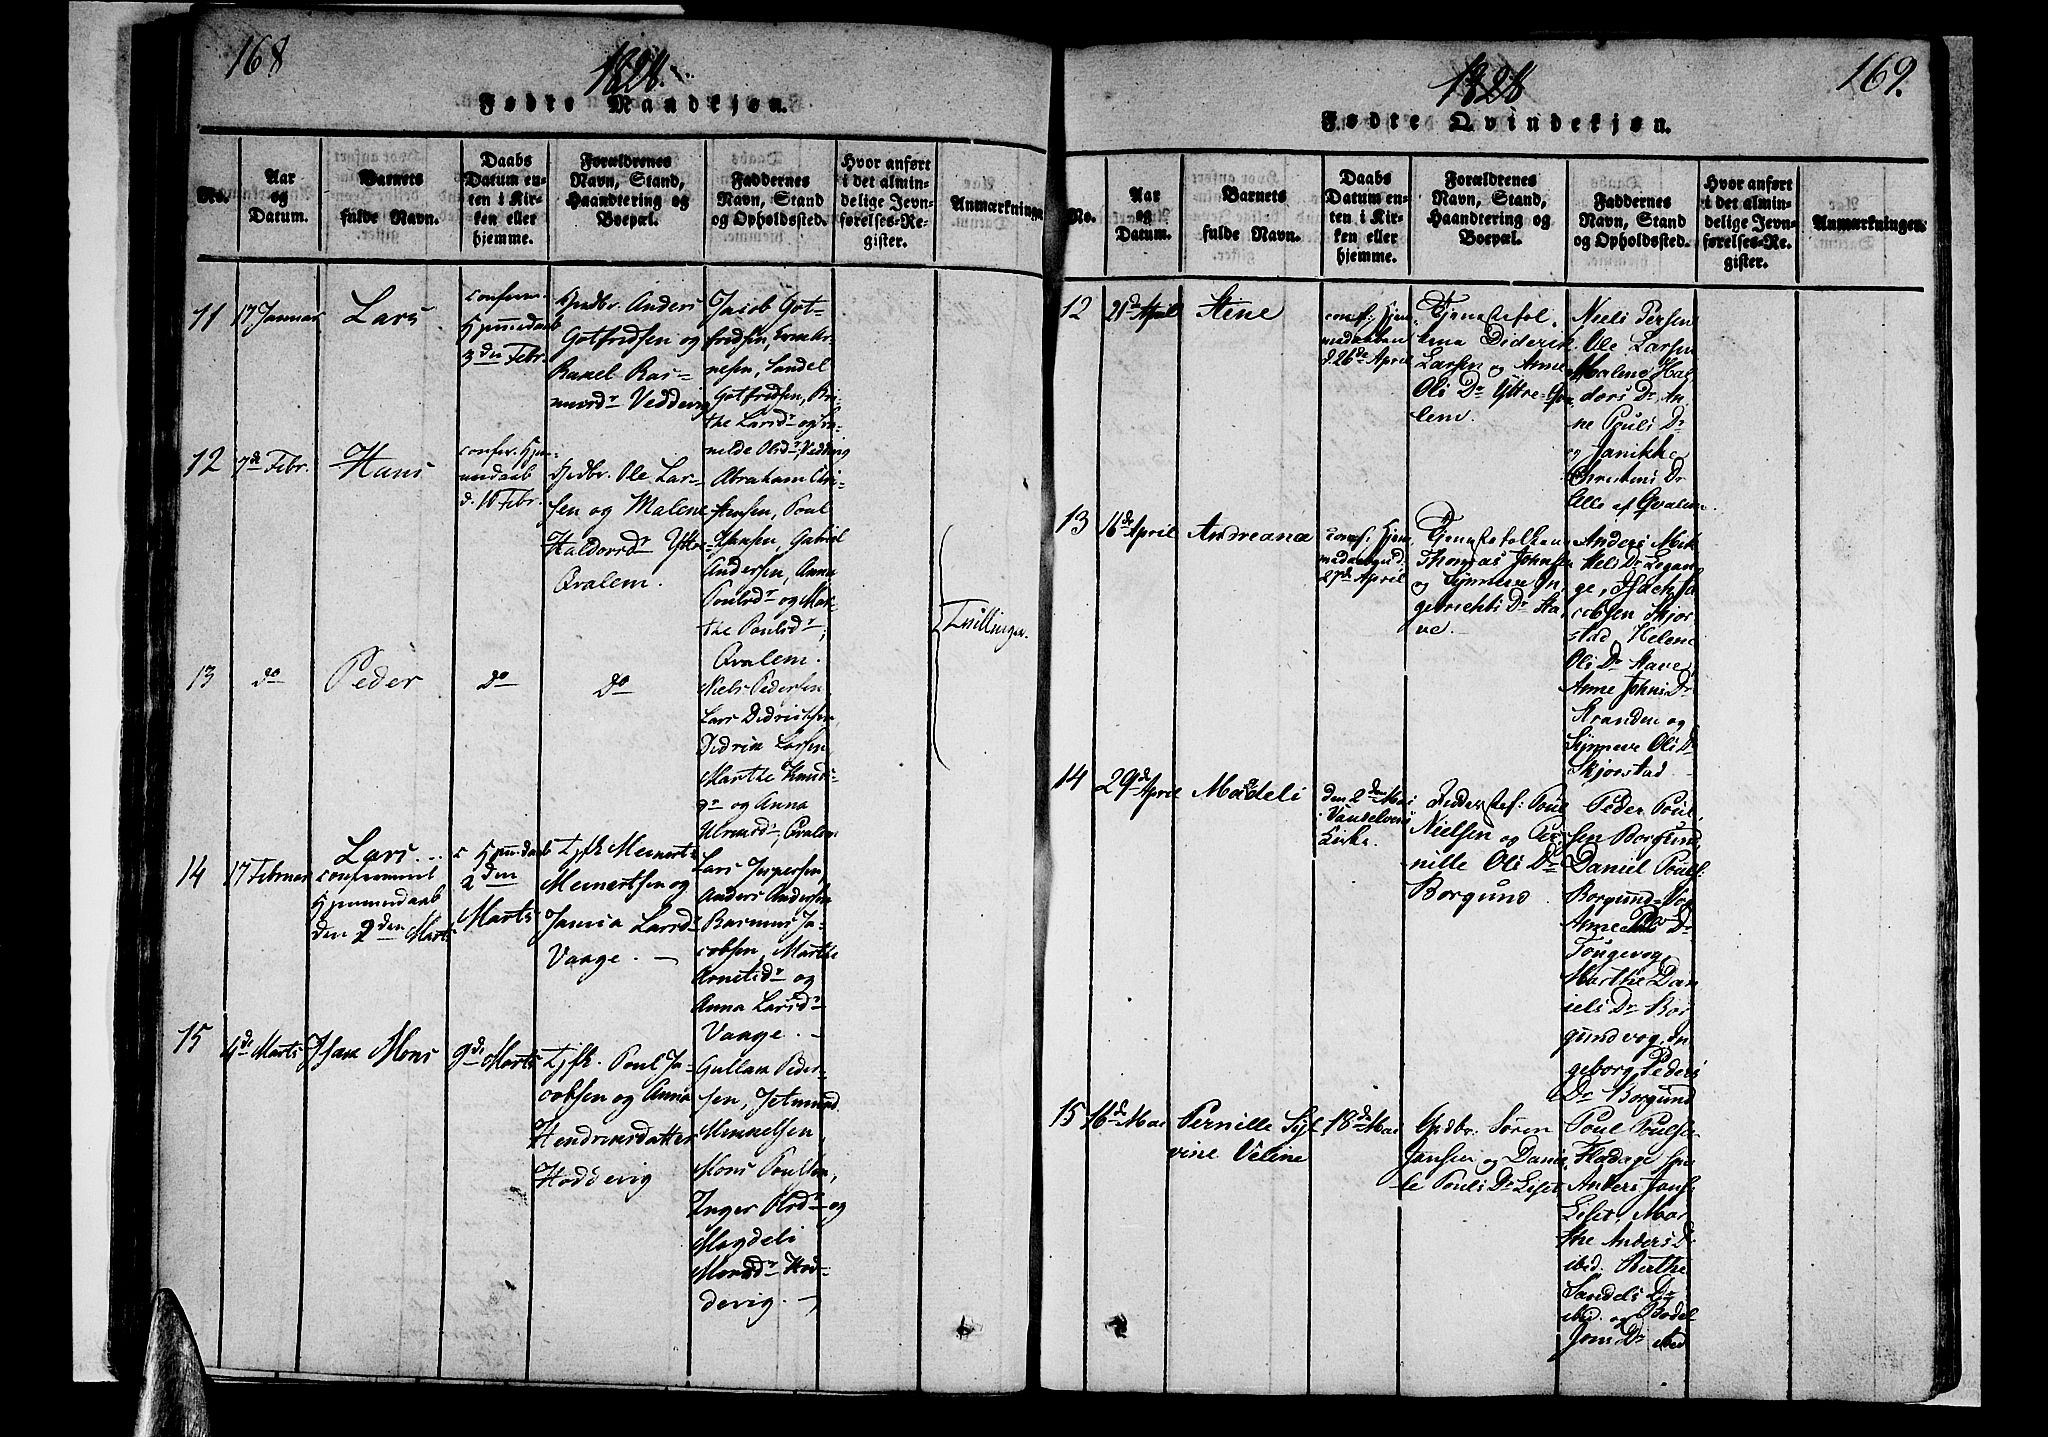 168
1828.
Fødte Mandkjøn.
No.
Aar
og
Datum.
Barnets
fulde Navn.
Daabs
Datum en-
ten i Kir-
ken eller
hjemme.
Forældrenes
Navn, Stand,
Haandtering og
Boepæl.
Faddernes
Navn, Stand
og Opholdssted.
Hvor anført
i det almin-
delige Jevn-
førelses-Re-
gister.
Anmærkninge
11
17 Januar
Lars
confer.
Hjemmedaab
3den Febr.
Gotfridsen og
Vedvig
Jacob Got-
fridsen,
Gotfridsen, Bri-
the Larsdr og
12
7de Febr.
Hans
confer. Hjem-
medaab
d. 10 Febr.
Ole Lar-
sen og Malene
Haldorsdr Yttre
Qvalem.
Abraham Chri-
stensen, Poul
Hansen, Gabriel
Andersen, Anna
Poulsdr og Mar-
the Poulsdr,
Qvalem.
Tvillinger.
13
do
Peder
do
do
Niels Pedersen
Lars Didricksen,
Didrik Larsen,
Marthe Knuds-
dr og Anna
Qvalem
14
17 Februar
Lars
confirmeret
Hjemmedaab
den 2den Marts
c Hjemdaab
2den
Marts
Meinert
Meinertsen og
Larsd
Vaage.
Lars Jespersen,
Anders Andersen
Rasmus Ja-
cobsen, Marthe
Arnetsdr og
Anna Larsdr
Vaage.
15
4de Marts
Isak Mons
9de Marts
Poul Ja-
cobsen og Anna
Hendriksdatter
Hoddevig
Gullak Peder-
sen, Jetmund
Mikkelsen,
Mons Poulsen,
Inger og
Magdeli
Monsdr Hod-
devig.
169.
1828
Fødte Qvindekjøn.
No.
Aar
og
Datum.
Barnets
fulde Navn.
Daabs
Datum en-
ten i Kir-
ken eller
hjemme.
Forældrenes
Navn, Stand,
Haandtering og
Boepæl.
Faddernes
Navn, Stand
og Opholdssted.
Hvor anført
i det almin-
delige Jevn-
førelses-Re-
gister.
Anmærkningen
12
21de April
Stine
conf: Hjem-
medaaben
d. 26de April
Tjenestefol-
kene Diderik
Larsen og Anne
Oli Dr Yttre-Qva
lem.
Niels Persen
Ole Larsen
Malene Hal
dors Dr, An
ne Pouls Dr
og Janikke
Christens Dr
Alle af Qvalem
13
16de April
Andreana
conf: Hjem
27de April
Tjenestefolkene
Thomas Johnsen
og Synneve In
gebrichts Dr Sta
ve.
Anders Mik
kels Dr Legan
ge, Isack Ja
cobsen Skjor
stad, Helene
Oli Dr Stave
Anne Johns Dr
Stranden og
Synneve Oli Dr
Skjorstad
14
29de April
Madeli
den 2den Mai
i Vandelvens
Kirke.
Poul
Nielsen og Per
nille Oli Dr
Borgund
Peder Poul
sen Borgund,
Daniel Pouls:
Borgund og
Anne Dr
Tougevog
Marthe Dan
iels Dr Bor
gundvog, In
geborg Peders
Dr Borgund
15
16de Mai
Pernille Syl
vine Veline
18de Mai
Grdbr. Søren
Jansen og Danie
le Pouls Dr Liset
Poul Poulse
Flodage
Anders Jans:
Liset, Mar
the Anders Dr
ibid. Berthe
Sandels Dr
ibid. og Bodel
Jons Dr ibid